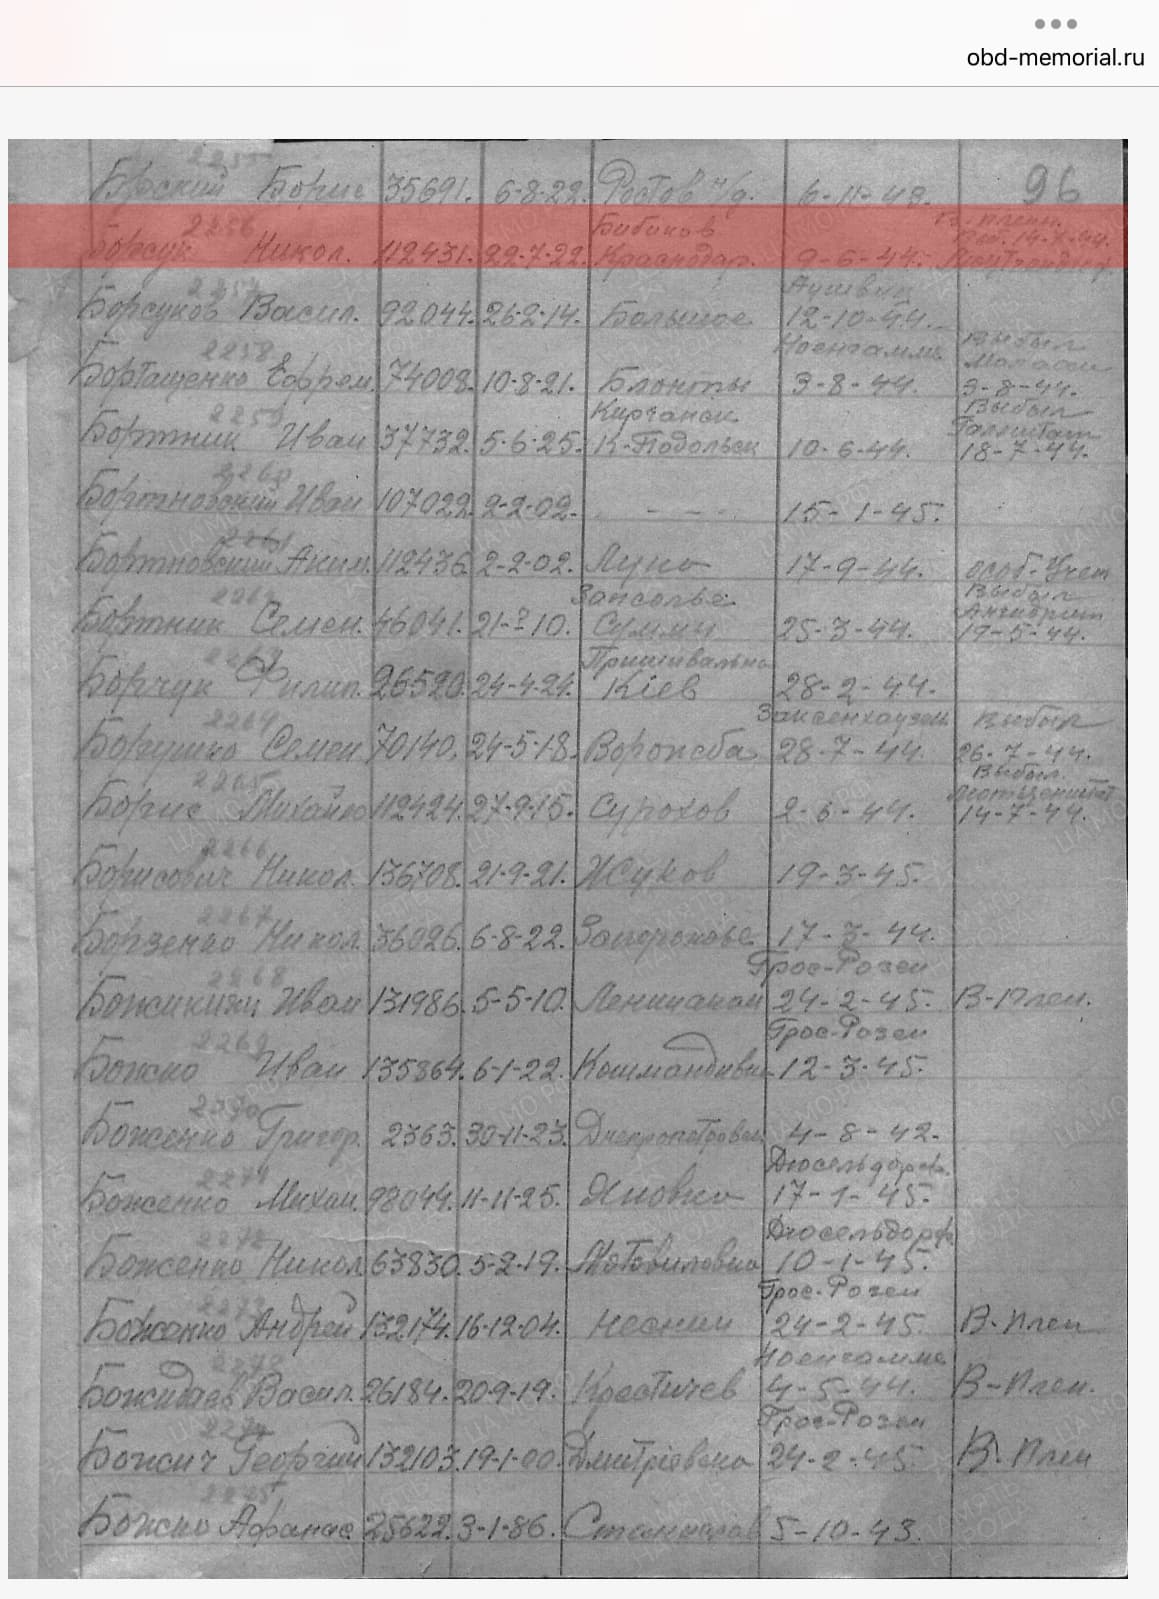 obd-memorial.ru
96
2255
Борский Борис 35691. 6-8-22. Ростов н/д. 6-11-43.
2256 Бибиков В-плен.
Борсук Никол. 112431. 22-7-22. Краснодар. 9-6-44. Выб. 14-7-44.
2257 Аушвиц
Борсуков Васил. 92044. 26-2-14. Большое 12-10-44.
2258 Ноенгамме Выбыл
Борташенко Ефрем. 74008. 10-8-21. 3-8-44. 3-8-44.
2259 Выбыл
Бортник Иван 37732. 5-6-25. К-Подольск 10-6-44. 18-7-44.
2260
Бортновский Иван 107022. 2-2-02. - - - 15-1-45.
2261
Бортновский Аким. 112436. 2-2-02. 17-9-44. особ-Учет
2262 Выбыл
Бортник Семен. 46041. 21-?-10. Суммы 25-3-44. 19-5-44.
2263
Борчук Филип. 26520. 24-4-24. Кiев 28-2-44.
2264 Заксенхаузень выбыл
Борушко Семен 70140. 24-5-18. Ворожба 28-7-44. 26-7-44.
2265 Выбыл.
Борис Михайло 112424. 27-9-15. Сурохов 2-6-44. 14-7-44.
2266
Борисович Никол. 136708. 21-9-21. Жуков 19-3-45.
2267
Борзенко Никол. 36026. 6-8-22. 17-3-44.
2268 Грос-Розен
Иван 131986. 5-5-10. Ленинакан 24-2-45. В-Плен.
2269 Грос-Розен
Божко Иван 135864. 6-1-22. 12-3-45.
2270
Боженко Григор. 2363. 30-11-23. 4-8-42.
2271 Дюсельдорф.
Боженко Михаи. 98044. 11-11-25. 17-1-45.
2272 Дюсельдорф
Боженко Никол. 63830. 5-2-19. Мотовиловка 10-1-45.
2273 Грос-Розен
Боженко Андрей 132174. 16-12-04. 24-2-45. В-Плен
Ноенгамме
Васил. 26184. 20-9-19. 4-5-44. В-Плен.
2274 Грос-Розен
Божич Георгий 132103. 19-1-00. Дмитрiевка 24-2-45. В-Плен
2275
Божко Афанас. 25622. 3-1-86. 5-10-43.